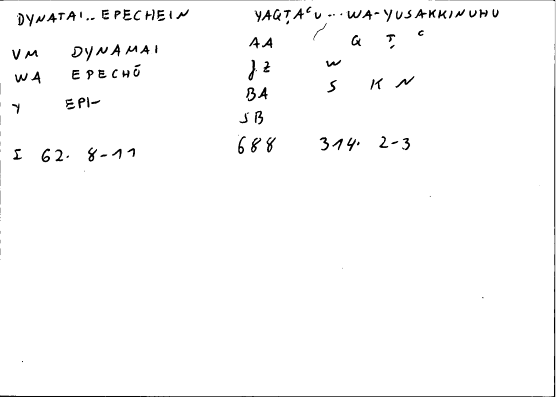 DYNATAI.. EPECHEIN YAQṬAᶜU ... WA-YUSAKKINUHU
VM DYNAMAI AA / Q Ṭ ᶜ
WA EPECHŌ JZ W
Y EPI- BA S K N
SB
I 62. 8-11 688 314. 2-3